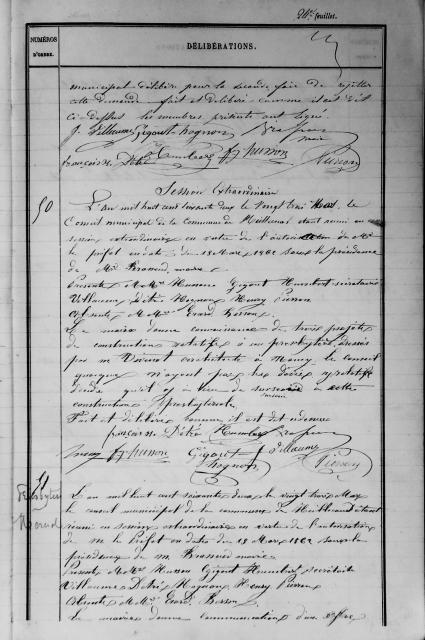 feuillet.
NUMÉROS
D'ORDRE.
DÉLIBÉRATIONS.
municipal délibère pour la seconde fois de rejeter
cette demande fait et délibéré comme il est dit
ci-dessus les membres présents ont signé.
J. Villaume Gigout Hognon
maire
françois Humbert husson Pierson
Session Extraordinaire
50
L'an mil huit cent soixante deux le vingt trois Mars, le
Conseil municipal de la Commune de étant réuni en
session extraordinaire en vertu de l'autorisation de Mr
le préfet en date du 18 Mars 1862 sous la présidence
de Mr maire
Présents MM. Husson Gigout Humbert secrétaire
Villaume Détré Hognon Henry Pierson
Absents MM. Gérard
Le maire donne connaissance de trois projets
de constructions relatifs à un presbytère dressés
par m architecte à le conseil
quoique n'ayant pas les
décide qu'il y a lieu de surseoir à cette
construction presbytérale
Fait et délibéré comme il est dit ci-dessus
françois Détré Humbert
husson Gigout J. Villaume
Hognon Pierson
51
L'an mil huit cent soixante deux le vingt trois Mars
le conseil municipal de la commune de étant
réuni en session extraordinaire en vertu de l'autorisation
de m le Préfet en date du 18 Mars 1862 sous la
présidence de m maire
Présents MMrs Husson Gigout Humbert secrétaire
Villaume Détré Hognon Henry Pierson
Absents MMrs Gérard
Le maire donne communication d'une